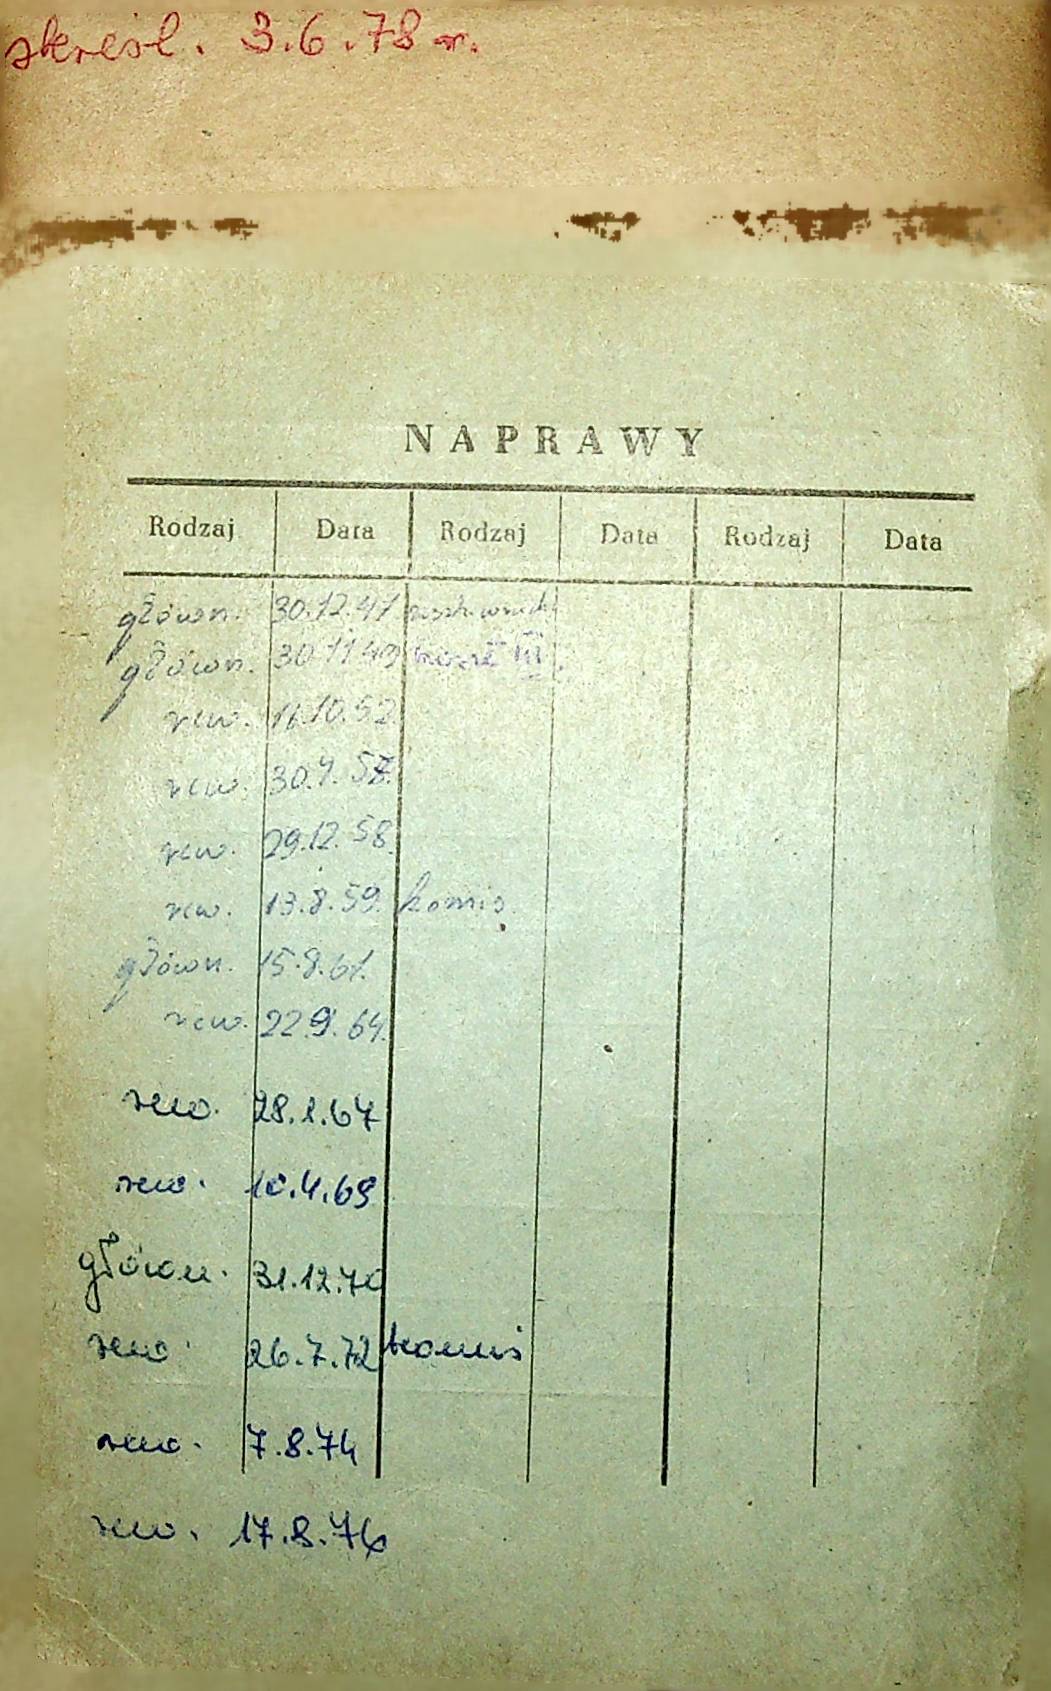 skreśl. 3.6.78 r.
NAPRAWY
Rodzaj Data Rodzaj Data Rodzaj Data
główn. 30.12.47
główn. 30 11 49 III
rew. 16.10.52
rew. 30.4.
rew. 29.12.58.
rew. 13.8.59. komis.
główn. 15.8.61.
rew. 22.9.64.
rew. 28.1.67
rew. 10.4.69
główn. 31.12.70
rew. 26.7.72 komis
rew. 7.8.74
rew. 17.8.76